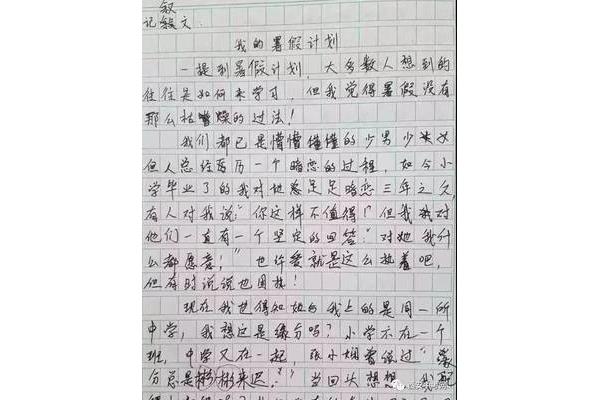 叙
记叙文
我的暑假计划
一提到暑假计划,大多数人想到的
往往是如何来学习,但我觉得暑假没有
那么枯燥的过法!
我们都已是懵懵懂懂的少男少女
但人总经历一个暗恋的过程,如今小
学毕业了的我对她足足暗恋三年之久
有人对我说:“你这样不值得!”但我对
他们一直有一个坚定的回答:“对她我什
么都愿意!”也许爱就是这么执着吧,
但有时说说也困执!
现在我也得知她与我上的是同一所
中学,我想这是缘分吗?小学不在一个
班,中学又在一起,张小娴曾说过“缘
分总是彬彬来迟”,当回头想想